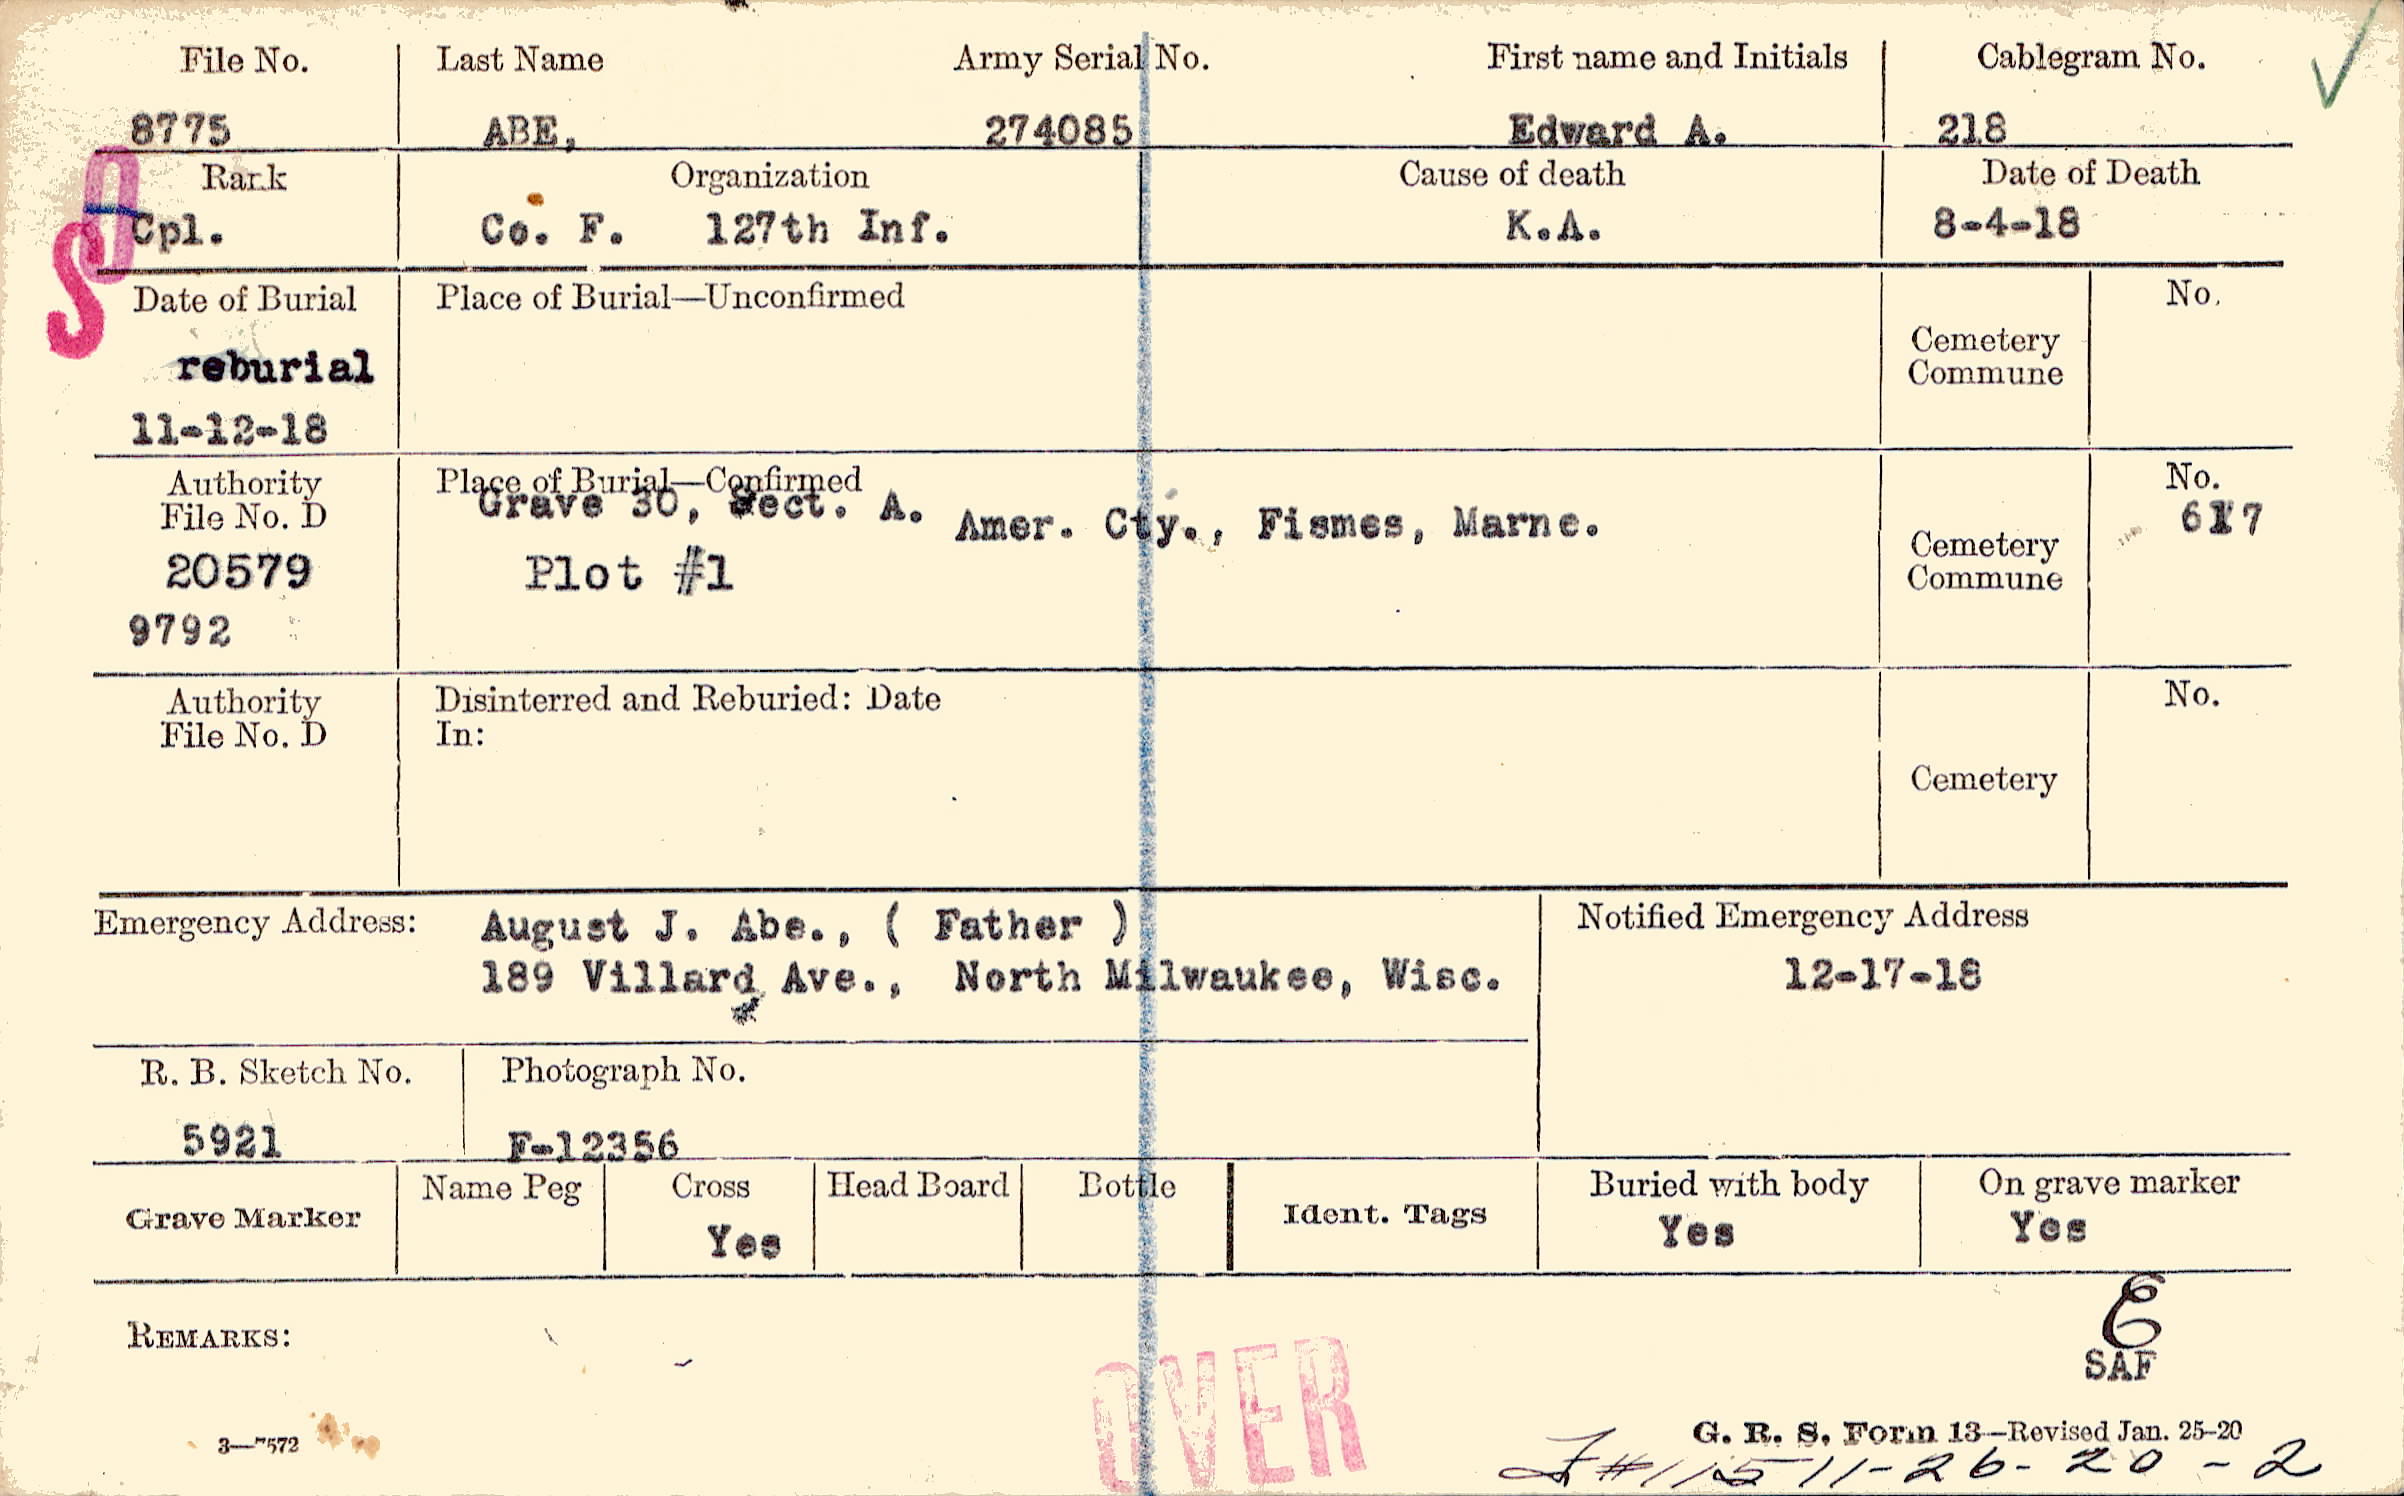 File No. Last Name Army Serial No. First name and Initials Cablegram No.
8775 ABE, 274085 Edward A. 218
Rank Organization Cause of death Date of Death
Cpl. Co. F. 127th Inf. K.A. 8-4-18
Date of Burial Place of Burial—Unconfirmed No.
Cemetery
Commune
reburial
11-12-18
Authority Place of Burial—Confirmed No.
File No. D Grave 30, Sect. A. Amer. Cty., Fismes, Marne. 617
Cemetery
Commune
20579 Plot #1
9792
Authority Disinterred and Reburied: Date No.
File No. D In:
Cemetery
Emergency Address: August J. Abe., ( Father ) Notified Emergency Address
189 Villard Ave., North Milwaukee, Wisc. 12-17-18
R. B. Sketch No. Photograph No.
5921 F-12356
Grave Marker Name Peg Cross Head Board Bottle Ident. Tags Buried with body On grave marker
Yes Yes Yes
E
REMARKS: SAF
OVER
3—7572 G. R. S. Form 13—Revised Jan. 25-20
#115 11-26-20-2